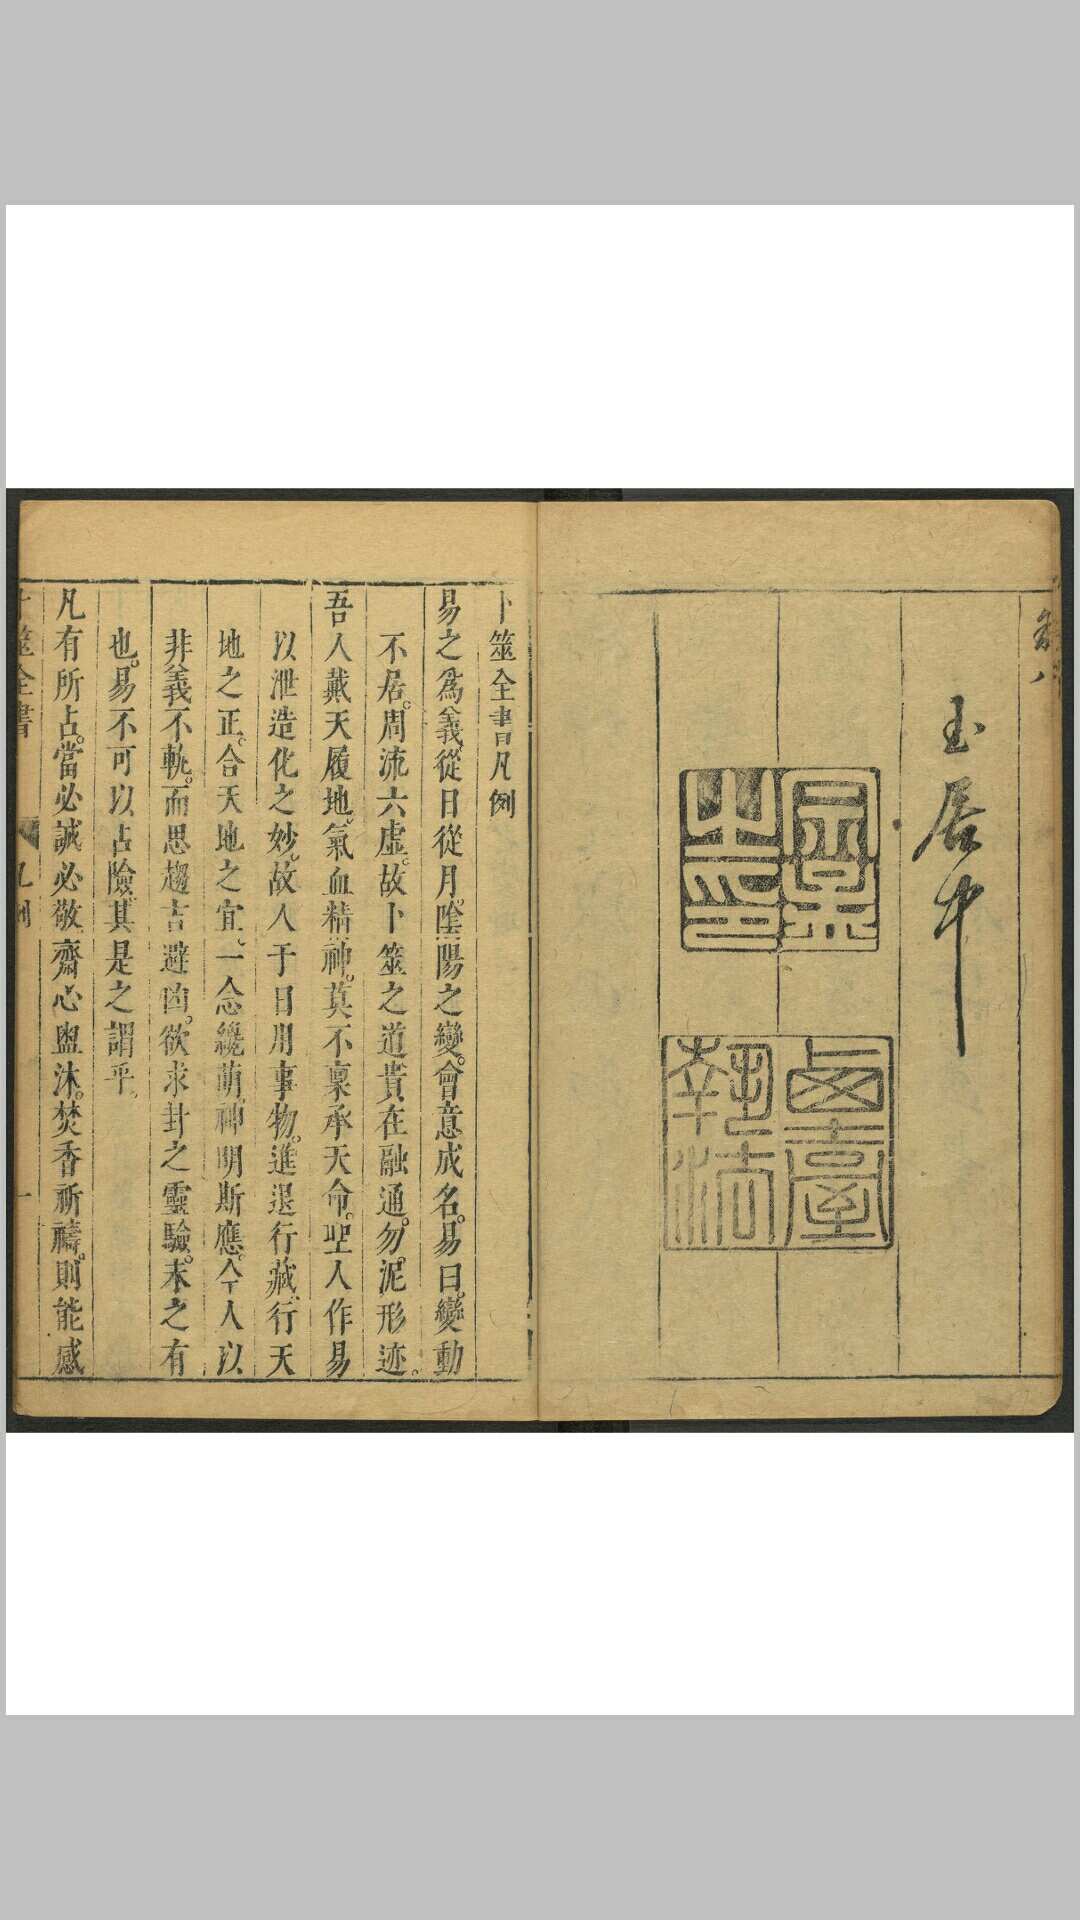 居中
臺執法
卜筮全書凡例
易之爲義從日從月。陰陽之變。會意成名。易曰。變動
不居。周流六虛。故卜筮之道貴在融通。勿泥形迹。
吾人戴天履地。氣血精神。莫不稟承天命。聖人作易
以泄造化之妙。故人于日用事物。進退行藏。行天
地之正。合天地之宜。一念纔萌。神明斯應。今人以
非義不軌。而思趨吉避凶。欲求卦之靈驗。未之有
也。易不可以占險。其是之謂乎。
凡有所占。當必誠必敬。齋心盥沐。焚香祈禱。則能感
卜筮全書 凡例 一